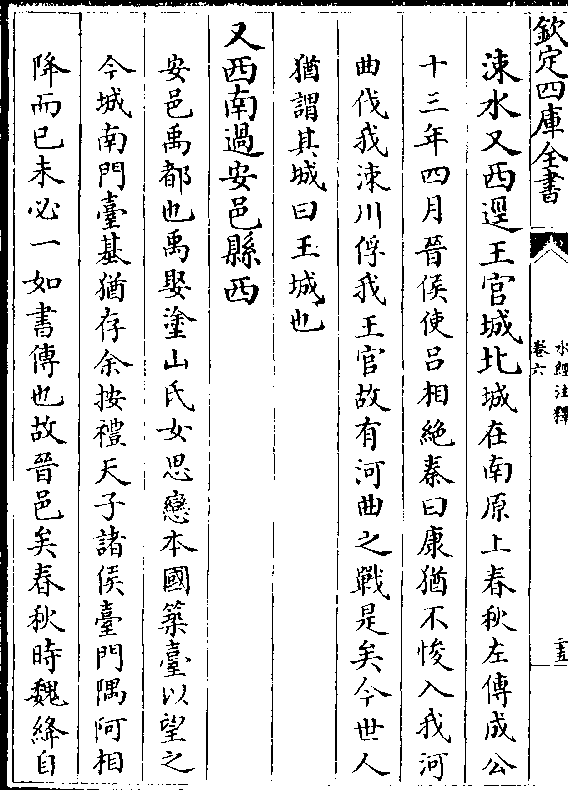 欽定四庫全書
水經注釋
卷六
二五
涑水又西逕王官城北城在南原上春秋左傳成公
十三年四月晉侯使吕相絶秦曰康猶不悛入我河
曲伐我涑川俘我王官故有河曲之戰是矣今世人
猶謂其城曰王城也
又西南過安邑縣西
安邑禹都也禹娶塗山氏女思戀本國築臺以望之
今城南門臺基猶存余按禮天子諸侯臺門隅阿相
降而已未必一如書傳也故晉邑矣春秋時魏絳自